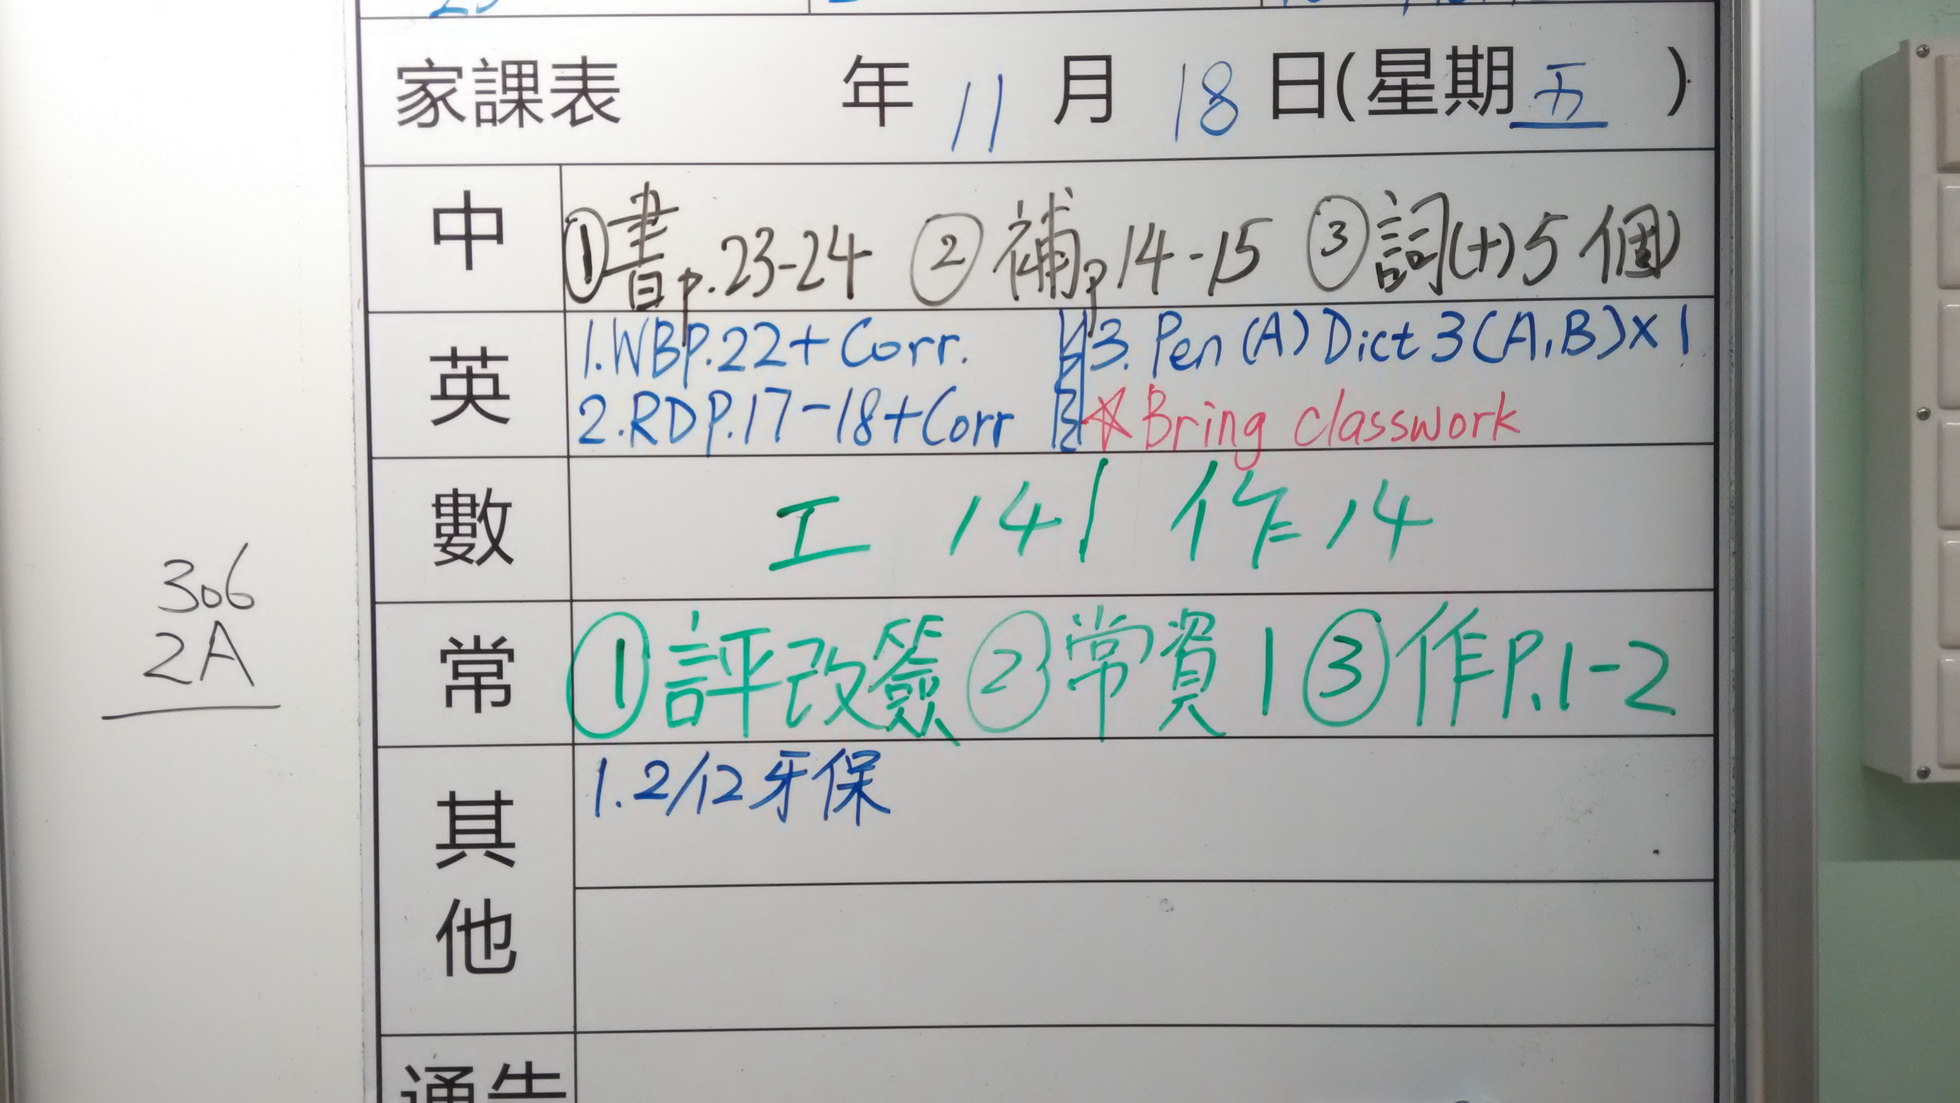 家課表 年 11 月 18 日(星期 五 )
中 ①書p.23-24 ②補p14-15 ③詞(十)5個
英 1.WBP.22+Corr. 3. Pen (A) Dict 3(A,B)×1
2.RDP.17-18+Corr ☆Bring classwork
數 工 14 / 作 14
常 ①評改簽 ②常資1 ③作P.1-2
其他 1. 2/12牙保
通告
306
2A